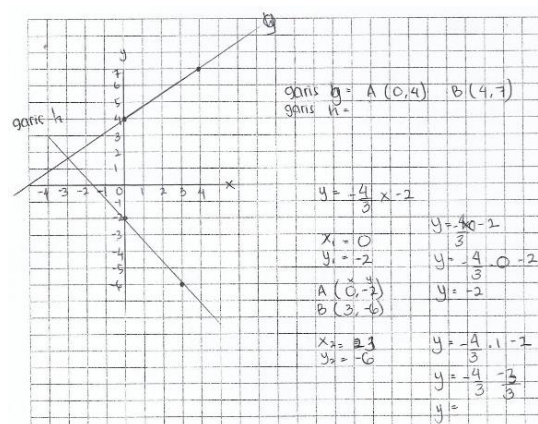 g
y
7
6
5
4
garis h
3
2
1
-4 -3 -2 -1 0 1 2 3 4 x
-1
-2
-3
-4
-5
-6
garis g = A (0,4) B (4,7)
garis h =
y = -4/3 x -2
x₁ = 0
y₁ = -2
x y
A (0,-2)
B (3,-6)
x₂ = 3
y₂ = -6
y = -4/3 -2
y = -4/3 . 0 -2
y = -2
y = -4/3 . 1 -2
y = -4/3 -3/3
y =